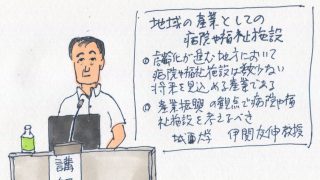 地域の産業としての
病院や福祉施設
①高齢化が進む地方において
病院や福祉施設は数少ない
将来を見込める産業である
②産業振興の観点で病院や福
祉施設を考えるべき
城西大学 伊関友伸教授
講師